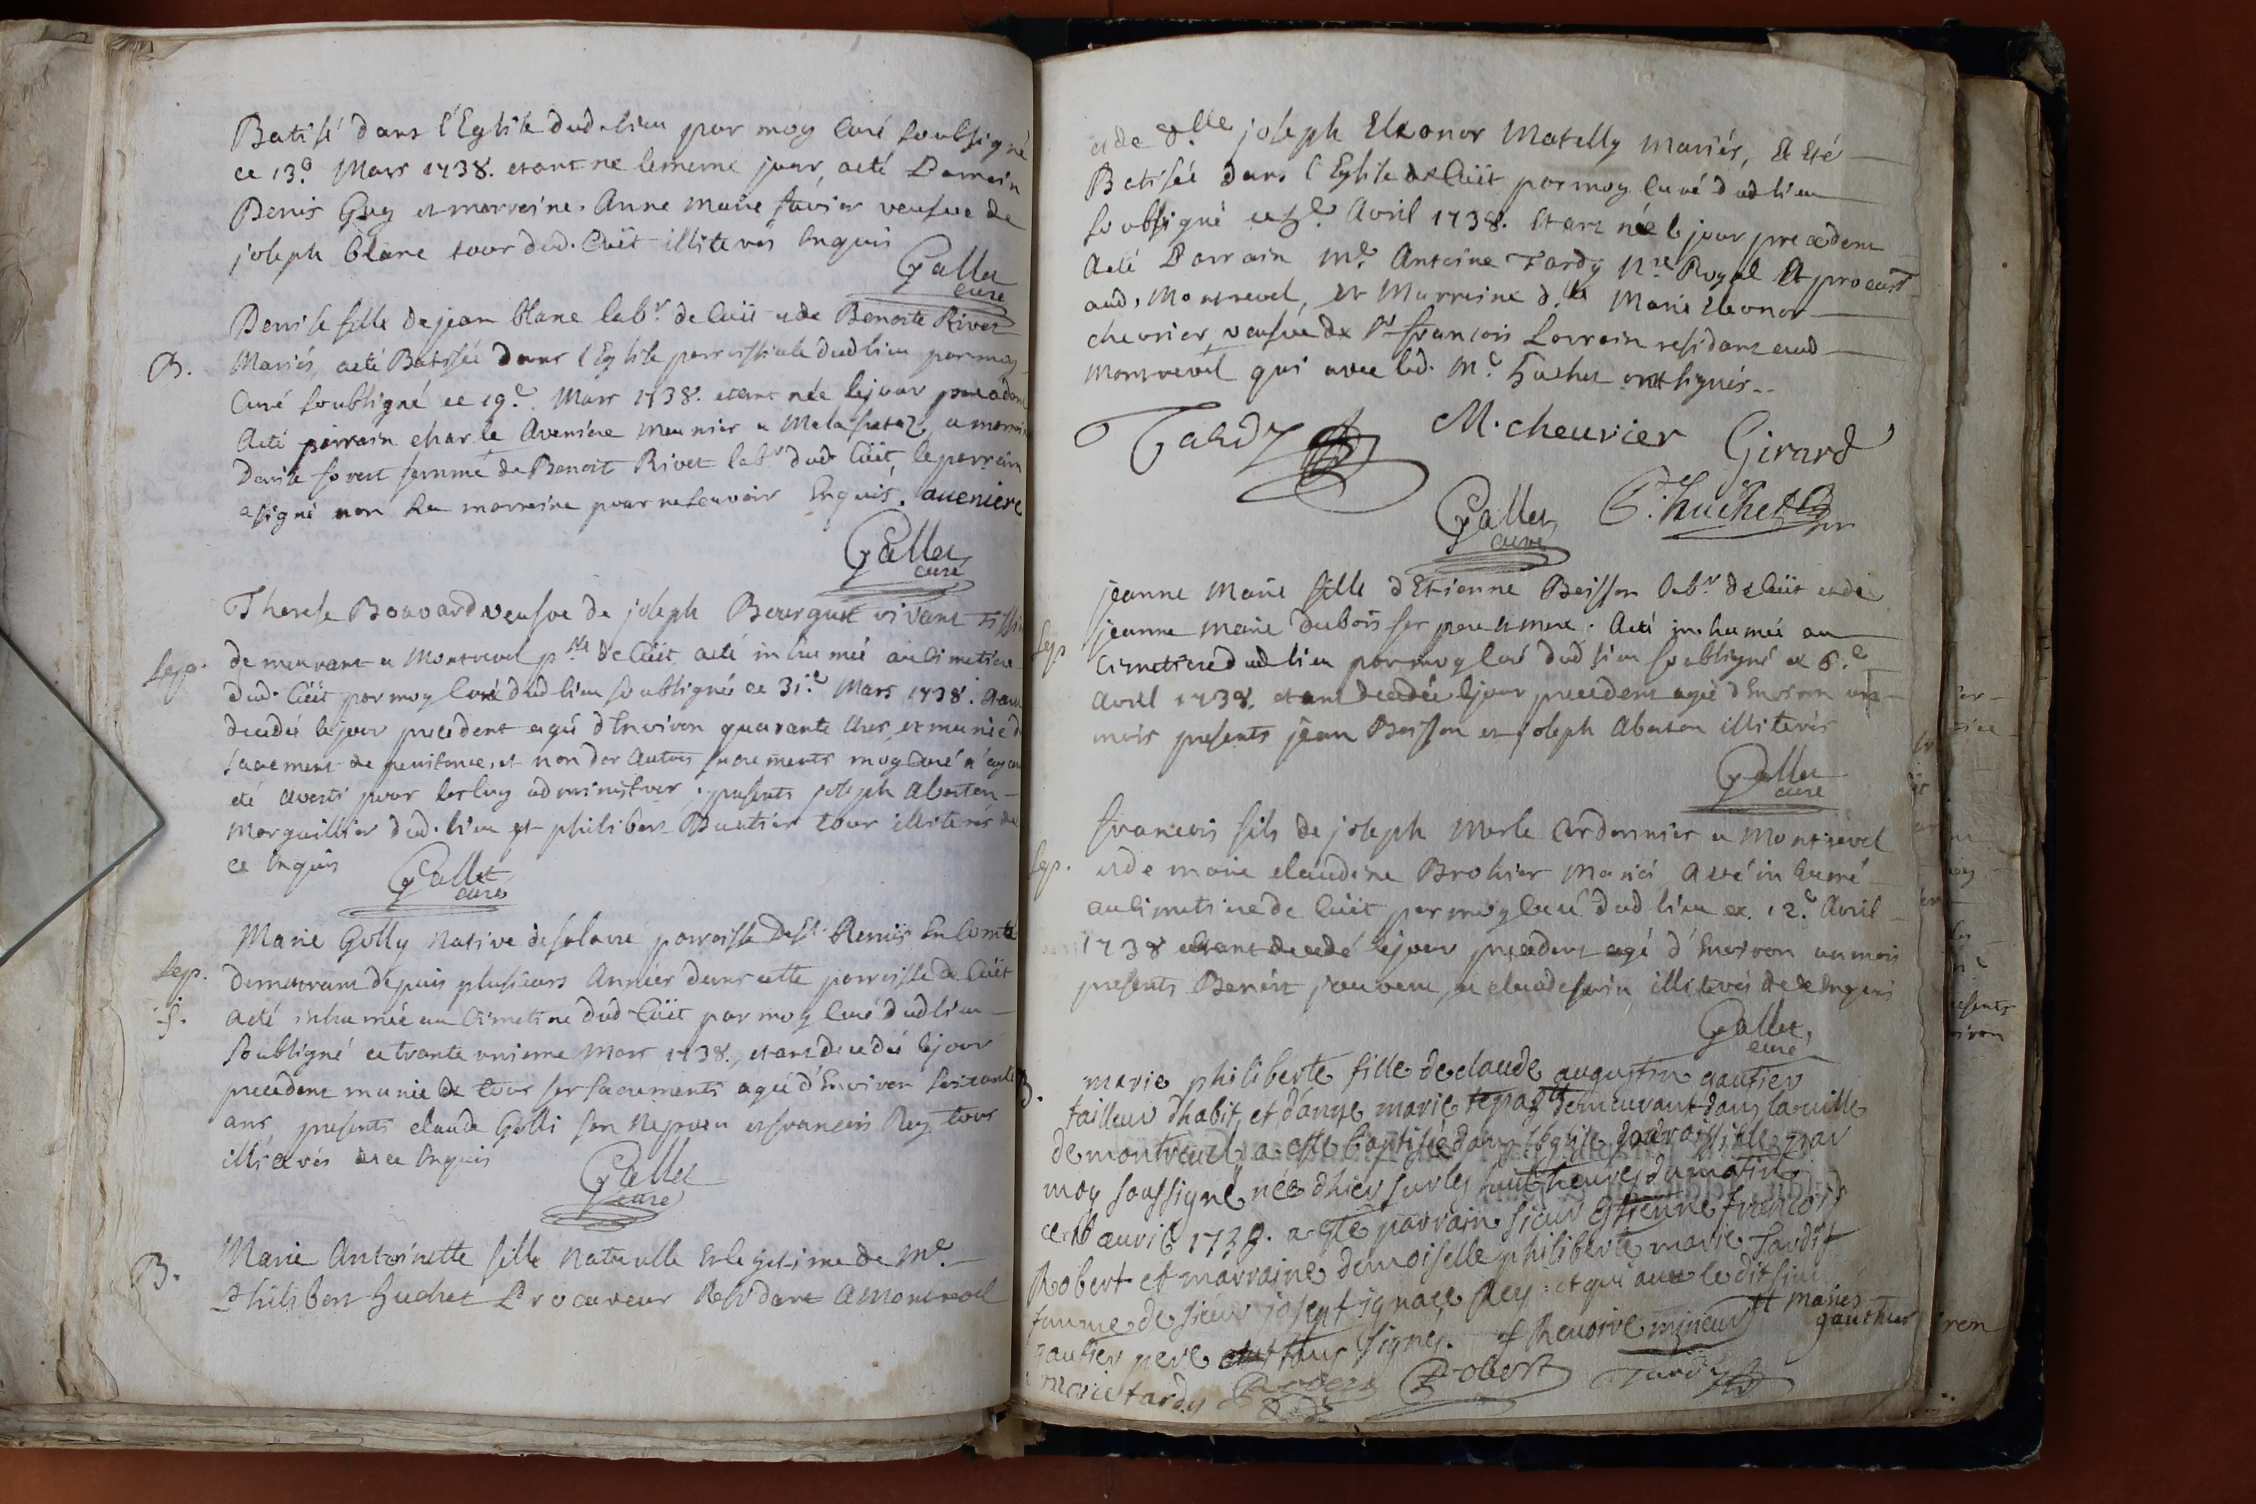 Batisé dans l'Eglise dud. lieu par moy Curé soubsigné
ce 13.e Mars 1738. etant né le meme jour, a eté Parrein
Denis Guy et marreine. Anne Marie favier veufve de
joseph blanc tous dud. Cüet illiterés Enquis
Gallet
curé
Denise fille de jean blanc lab.r de Cüet et de Benoite Rivet
B. Mariés, a eté Batisée dans l'Eglise parroissiale dud lieu par moy
Curé soubsigné ce 19.e Mars 1738. etant née le jour precedent
A eté parrain charle Aveniere meunier a et marreine
Denise forest femme de Benoit Rivet lab.r dud Cüet, le parrein
a signé non la marreine pour ne scavoir Enquis. aveniere
Gallet
curé
Therese Bouvard veufve de joseph Bourgut vivant
Sep. demeurant a Montrevel p.sse de Cüet a eté inhumée au Cimetiere
dud. Cüet par moy Curé dud lieu soubsigné ce 31.e Mars 1738. etant
decedée le jour precedent agée d'Environ quarante Ans, et munie du
sacrement de penitence, et non des Autres sacrements moy Curé n'ayant
eté averti pour les luy administrer. presents joseph Abaton
Marguillier dud. lieu et philibert tous illiterés de
ce Enquis
Gallet
curé
Marie Golly Native de parroisse de St. Remis En Comté
Sep. demeurant depuis plusieurs Années dans cette parroisse de Cüet
f. A eté inhumée au Cimetiere dud Cüet par moy Curé dud lieu
soubsigné ce trante unieme Mars 1738., etant decedée le jour
precedent munie de tous ses sacrements agée d'Environ soixante
ans, presents claude Golli son Nepveu et francois Rey tous
illiterés de ce Enquis
Gallet
curé
B. Marie Antoinette fille naturelle Et legetime de M.e
Philibert huchet Procureur Residant a Montrevel
et de d.lle joseph Eleonor Matelly Mariés, A Eté
Batisée dans l'Eglise de Cüet par moy Curé dud lieu
soubsigné ce Avril 1738. Etant née le jour precedent
A eté Parrain M.e Antoine Tardy N.re Royal Et procureur
aud. Montrevel, et Marreine d.lle Marie Eleonor
chevrier, veufve de Sr francois Lorrain residant aud
Montrevel qui avec led. M.e huchet ont signés.
Tardy M. cheuvrier Girard
Gallet P. huchet
curé
jeanne Marie fille d'Etienne Boisson lab.r de Cüet et de
Sep. jeanne Marie dubois ses pere et mere. A eté inhumée au
Cimetiere dud lieu par moy Curé dud lieu soubsigné ce 6.e
Avril 1738. etant decedée le jour precedent agée d'Environ un
mois presents jean Boisson et joseph Abaton illiterés
Gallet
curé
francois fils de joseph Merle Cordonnier a Montrevel
Sep. et de marie claudine Brohier Mariés, A eté inhumé
au Cimetiere de Cüet par moy Curé dud lieu ce 12.e Avril
1738 etant decedé le jour precedent agé d'Environ un mois
presents Benoit jouvent, et claude illiterés de ce Enquis
Gallet
curé
B. marie philiberte fille de claude augustin gautier
tailleur dhabit, et danne marie demeurant dans la ville
de montrevel, a esté baptisée dans l'eglise parroissialle par
moy soussigné, née dhier sur les huit heures du matin
ce avril 1738. a esté parrain sieur estienne francois
Robert et marraine demoiselle philiberte marie Tardif
famme de sieur joseph ignace Rey : et qui avec le dit sieur
gautier pere tous signés. gauthier
marie tardy Robert Tardy